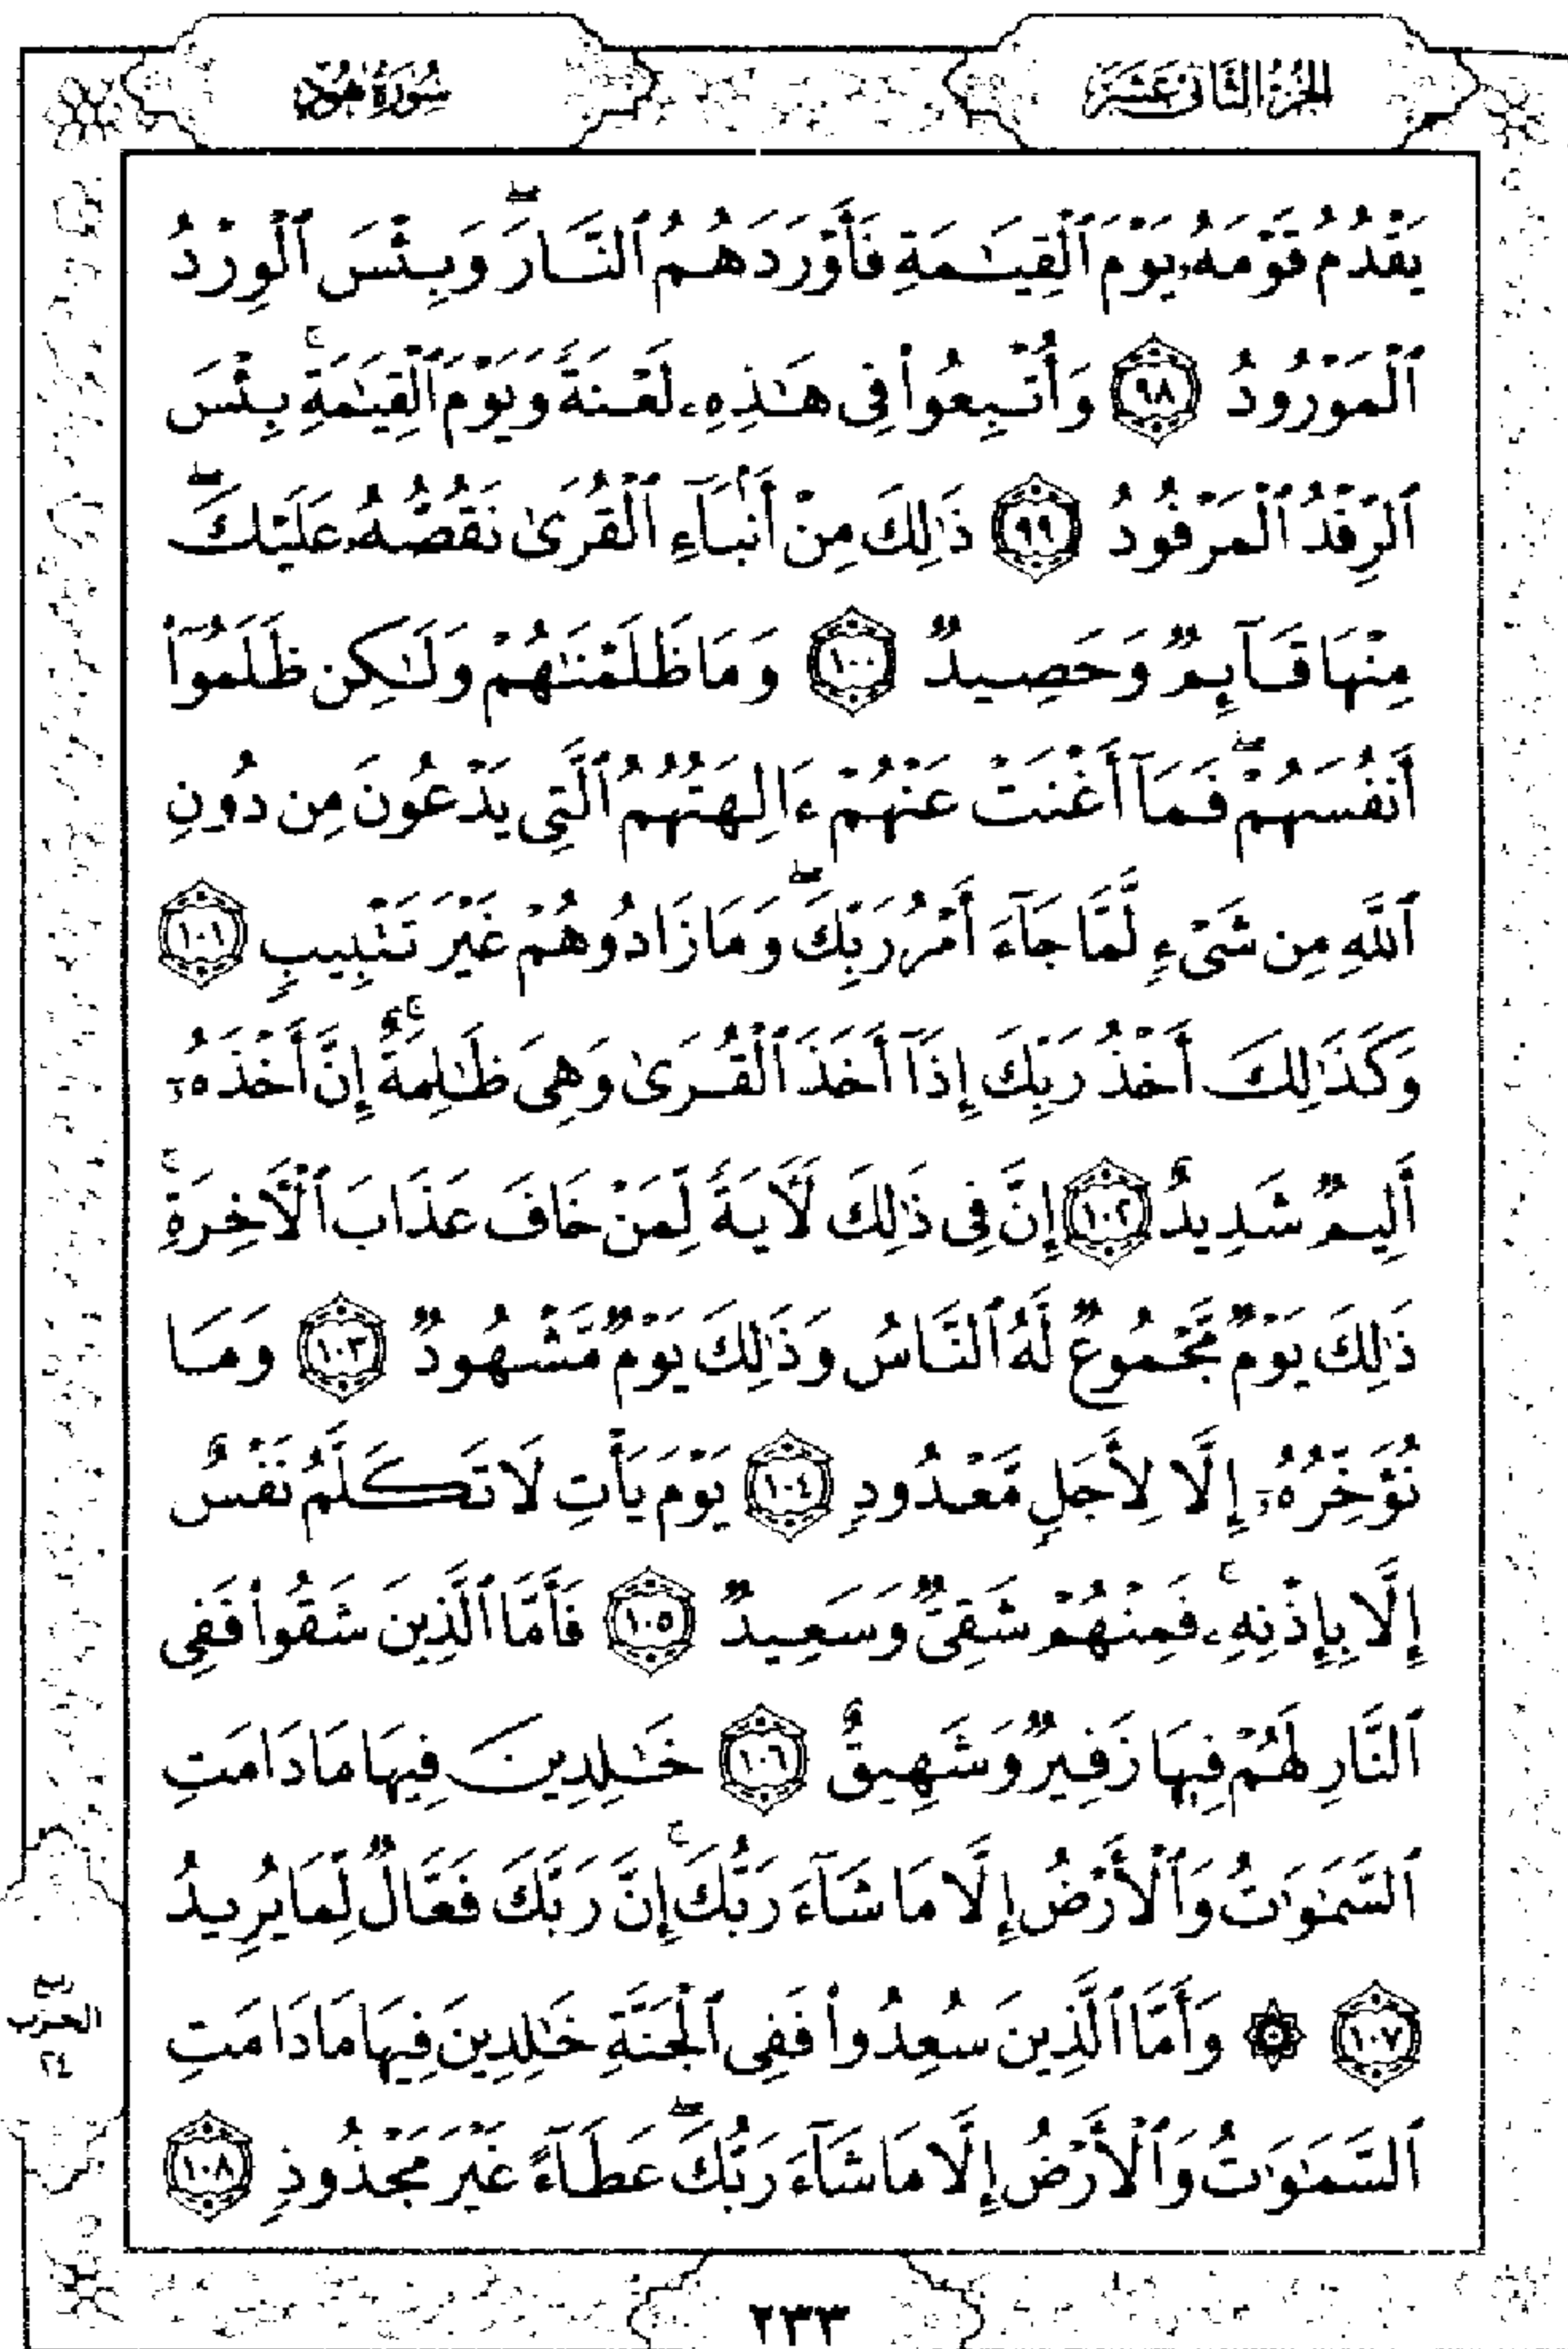 الجزء الثاني عشر
سورة هود
يَقْدُمُ قَوْمَهُۥ يَوْمَ ٱلْقِيَـٰمَةِ فَأَوْرَدَهُمُ ٱلنَّارَ ۖ وَبِئْسَ ٱلْوِرْدُ
ٱلْمَوْرُودُ ٩٨ وَأُتْبِعُوا۟ فِى هَـٰذِهِۦ لَعْنَةً وَيَوْمَ ٱلْقِيَـٰمَةِ ۚ بِئْسَ
ٱلرِّفْدُ ٱلْمَرْفُودُ ٩٩ ذَٰلِكَ مِنْ أَنۢبَآءِ ٱلْقُرَىٰ نَقُصُّهُۥ عَلَيْكَ ۖ
مِنْهَا قَآئِمٌ وَحَصِيدٌ ١٠٠ وَمَا ظَلَمْنَـٰهُمْ وَلَـٰكِن ظَلَمُوٓا۟
أَنفُسَهُمْ ۖ فَمَآ أَغْنَتْ عَنْهُمْ ءَالِهَتُهُمُ ٱلَّتِى يَدْعُونَ مِن دُونِ
ٱللَّهِ مِن شَىْءٍ لَّمَّا جَآءَ أَمْرُ رَبِّكَ ۖ وَمَا زَادُوهُمْ غَيْرَ تَتْبِيبٍ ١٠١
وَكَذَٰلِكَ أَخْذُ رَبِّكَ إِذَآ أَخَذَ ٱلْقُرَىٰ وَهِىَ ظَـٰلِمَةٌ ۚ إِنَّ أَخْذَهُۥٓ
أَلِيمٌ شَدِيدٌ ١٠٢ إِنَّ فِى ذَٰلِكَ لَـَٔايَةً لِّمَنْ خَافَ عَذَابَ ٱلْـَٔاخِرَةِ ۚ
ذَٰلِكَ يَوْمٌ مَّجْمُوعٌ لَّهُ ٱلنَّاسُ وَذَٰلِكَ يَوْمٌ مَّشْهُودٌ ١٠٣ وَمَا
نُؤَخِّرُهُۥٓ إِلَّا لِأَجَلٍ مَّعْدُودٍ ١٠٤ يَوْمَ يَأْتِ لَا تَكَلَّمُ نَفْسٌ
إِلَّا بِإِذْنِهِۦ ۚ فَمِنْهُمْ شَقِىٌّ وَسَعِيدٌ ١٠٥ فَأَمَّا ٱلَّذِينَ شَقُوا۟ فَفِى
ٱلنَّارِ لَهُمْ فِيهَا زَفِيرٌ وَشَهِيقٌ ١٠٦ خَـٰلِدِينَ فِيهَا مَا دَامَتِ
ٱلسَّمَـٰوَٰتُ وَٱلْأَرْضُ إِلَّا مَا شَآءَ رَبُّكَ ۚ إِنَّ رَبَّكَ فَعَّالٌ لِّمَا يُرِيدُ
١٠٧ ۞ وَأَمَّا ٱلَّذِينَ سُعِدُوا۟ فَفِى ٱلْجَنَّةِ خَـٰلِدِينَ فِيهَا مَا دَامَتِ
ٱلسَّمَـٰوَٰتُ وَٱلْأَرْضُ إِلَّا مَا شَآءَ رَبُّكَ ۖ عَطَآءً غَيْرَ مَجْذُوذٍ ١٠٨
الحزب
٢٣٣